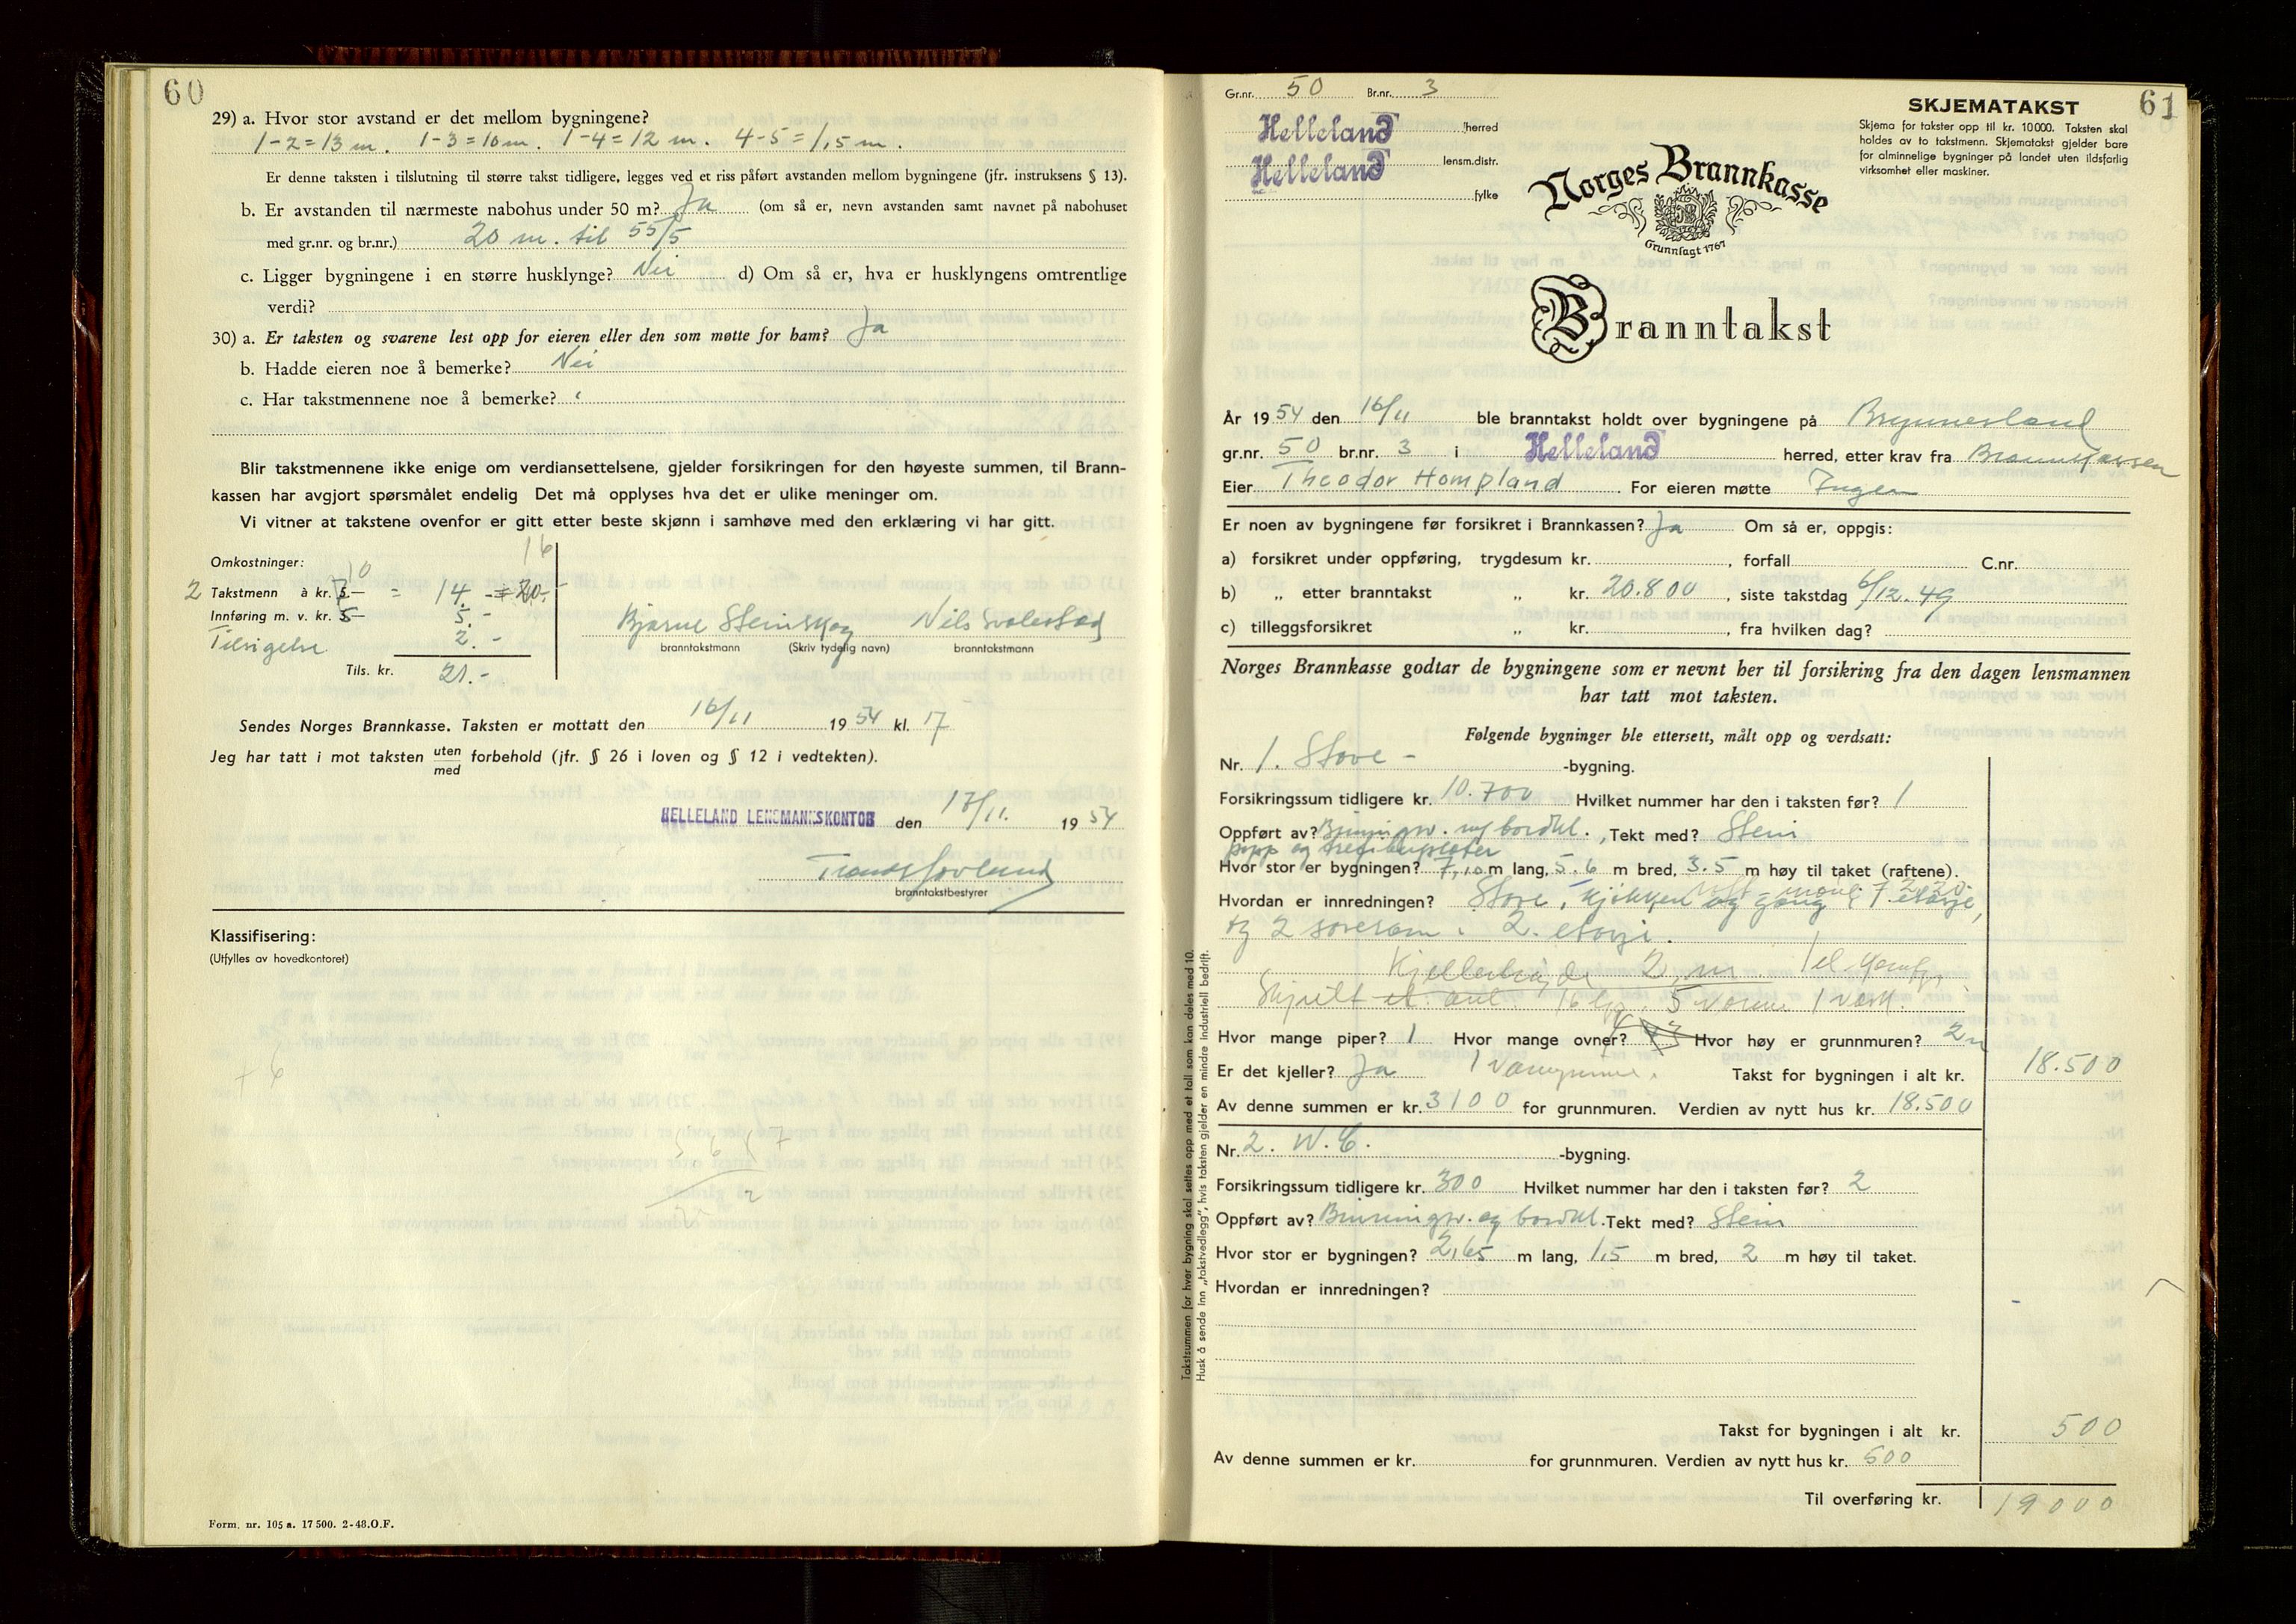 60
29) a. Hvor stor avstand er det mellom bygningene?
1-2=13 m. 1-3=10 m. 1-4=12 m. 4-5=1,5 m.
Er denne taksten i tilslutning til større takst tidligere, legges ved et riss påført avstanden mellom bygningene (jfr. instruksens § 13).
b. Er avstanden til nærmeste nabohus under 50 m? Ja (om så er, nevn avstanden samt navnet på nabohuset
med gr.nr. og br.nr.) 20 m. til 55/5
c. Ligger bygningene i en større husklynge? Nei d) Om så er, hva er husklyngens omtrentlige
verdi?
30) a. Er taksten og svarene lest opp for eieren eller den som møtte for ham? Ja
b. Hadde eieren noe å bemerke? Nei
c. Har takstmennene noe å bemerke? "
Blir takstmennene ikke enige om verdiansettelsene, gjelder forsikringen for den høyeste summen, til Brann-
kassen har avgjort spørsmålet endelig Det må opplyses hva det er ulike meninger om.
Vi vitner at takstene ovenfor er gitt etter beste skjønn i samhøve med den erklæring vi har gitt.
16
Omkostninger:
10
2 Takstmenn à kr. = 14.- = 20.-
Innføring m. v. kr. 5.-
Tilsigelse 2.-
Tils. kr. 21.-
Bjarne Steinskog Nils Svalestad
branntakstmann (Skriv tydelig navn) branntakstmann
Sendes Norges Brannkasse. Taksten er mottatt den 16/11 1954 kl. 17
Jeg har tatt i mot taksten uten/med forbehold (jfr. § 26 i loven og § 12 i vedtekten).
HELLELAND LENSMANNSKONTOR den 17/11. 1954
branntakstbestyrer
Klassifisering:
(Utfylles av hovedkontoret)
+ 6
Form. nr. 105 a. 17 500. 2-48.O.F.
61
Gr.nr. 50 Br.nr. 3
Helleland herred
Helleland lensm.distr.
fylke
SKJEMATAKST
Skjema for takster opp til kr. 10 000. Taksten skal
holdes av to takstmenn. Skjematakst gjelder bare
for alminnelige bygninger på landet uten ildsfarlig
virksomhet eller maskiner.
Norges Brannkasse
Grunnlagt 1767
Branntakst
År 1954 den 16/11 ble branntakst holdt over bygningene på Brynnesland
gr.nr. 50 br.nr. 3 i Helleland herred, etter krav fra Brannkassen
Eier Theodor Hompland. For eieren møtte Ingen
Er noen av bygningene før forsikret i Brannkassen? Ja Om så er, oppgis:
a) forsikret under oppføring, trygdesum kr. , forfall C.nr.
b) „ etter branntakst „ kr. 20.800, siste takstdag 6/12.49
c) tilleggsforsikret „ kr. , fra hvilken dag?
Norges Brannkasse godtar de bygningene som er nevnt her til forsikring fra den dagen lensmannen
har tatt mot taksten.
Følgende bygninger ble ettersett, målt opp og verdsatt:
Nr. 1. Stove - -bygning.
Forsikringssum tidligere kr. 10.700 Hvilket nummer har den i taksten før? 1
Oppført av? Binningsv. m/ bordkl., Tekt med? Stein
papp og trefiberplater
Hvor stor er bygningen? 7,10 m lang, 5.6 m bred, 3.5 m høy til taket (raftene).
Hvordan er innredningen? Stove, kjøkken og gang i 1. etasje,
og 2 soverom i 2. etasje.
Kjellerhøyde 2 m. 1 el
Skjult el. anl. 16 5
Hvor mange piper? 1 Hvor mange ovner? 4 Hvor høy er grunnmuren? 2 m
Er det kjeller? Ja 1 Takst for bygningen i alt kr. 18.500
Av denne summen er kr. 3100 for grunnmuren. Verdien av nytt hus kr. 18.500
Nr. 2. W.C. -bygning.
Forsikringssum tidligere kr. 300 Hvilket nummer har den i taksten før? 2
Oppført av? Binningsv. og bordkl. Tekt med? Stein
Hvor stor er bygningen? 2,65 m lang, 1,5 m bred, 2 m høy til taket.
Hvordan er innredningen?
Takst for bygningen i alt kr. 500
Av denne summen er kr. for grunnmuren. Verdien av nytt hus kr. 500
Til overføring kr. 19000
Takstsummen for hver bygning skal settes opp med et tall som kan deles med 10.
Husk å sende inn „takstvedlegg", hvis taksten gjelder en mindre industriell bedrift.